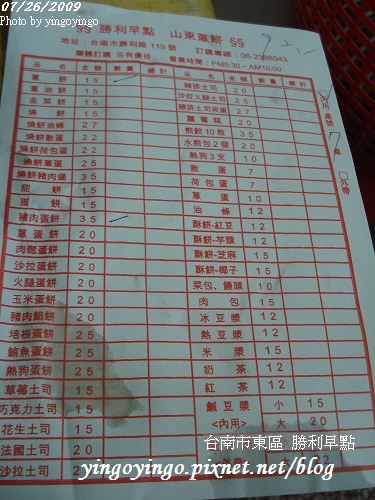 07/26/2009
Photo by yingoyingo
§§ 勝利早點 山東蔥餅 §§
地址：台南市勝利路119號 訂購專線：06-2386043
團體訂購 另有優待 營業時間：PM5:30～AM10:00
品名 金額 數量 總計 品名 金額 數量 總計
蔥餅 15 豬排土司 20
蔥油餅 15 沙拉火腿土司 25
韭菜餅 15 豬排土司夾蛋 27
燒餅 15 蘿蔔糕 20
燒餅油條 27 煎餃10粒 35
燒餅散蛋 22 水煎包2個 20
燒餅荷包蛋 22 熱狗3支 10
燒餅蔥蛋 25 散蛋 7
燒餅豬肉煲 35 荷包蛋 7
甜餅 15 蔥蛋 10
蛋餅 15 油條 12
豬肉蛋餅 35 酥餅-紅豆 12
蔥蛋餅 20 酥餅-芋頭 12
肉鬆蛋餅 20 酥餅-芝麻 15
沙拉蛋餅 20 酥餅-椰子 15
火腿蛋餅 20 菜包、饅頭 10
玉米蛋餅 20 肉包 15
豬肉餡餅 20 冰豆漿 12
培根蛋餅 25 熱豆漿 12
鮪魚蛋餅 25 米漿 15
熱狗蛋餅 25 奶茶 12
草莓土司 15 紅茶 12
巧克力土司 15 鹹豆漿 小 15
花生土司 15 <內用> 大 20
法國土司 20
沙拉土司 20
外帶
台南市東區 勝利早點
yingoyingo.pixnet.net/blog